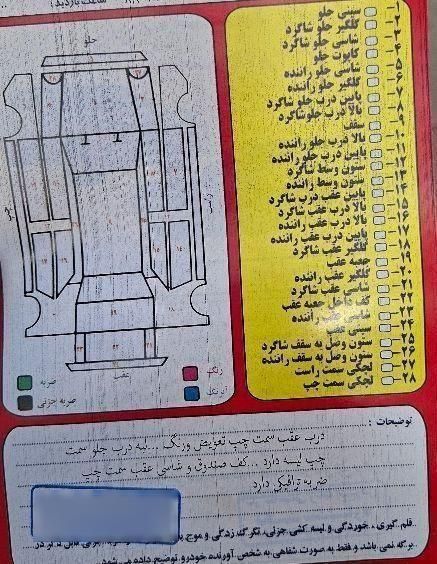 ساعت بازدید :
۱- سینی جلو
۲- گلگیر جلو شاگرد
۳- شاسی جلو شاگرد
۴- کاپوت جلو
۵- شاسی جلو راننده
۶- گلگیر جلو راننده
۷- پایین درب جلو شاگرد
۸- بالا درب جلو شاگرد
۹- سقف
۱۰- بالا درب جلو راننده
۱۱- پایین درب جلو راننده
۱۲- ستون وسط شاگرد
۱۳- ستون وسط راننده
۱۴- پایین عقب درب شاگرد
۱۵- بالا درب عقب شاگرد
۱۶- بالا درب عقب راننده
۱۷- پایین درب عقب راننده
۱۸- گلگیر عقب شاگرد
۱۹- جعبه عقب
۲۰- گلگیر عقب راننده
۲۱- شاسی عقب شاگرد
۲۲- کف داخل جعبه عقب
۲۳- شاسی عقب راننده
۲۴- سینی عقب
۲۵- ستون وصل به سقف شاگرد
۲۶- ستون وصل به سقف راننده
۲۷- لچکی سمت راست
۲۸- لچکی سمت چپ
جلو
چپ
راست
عقب
رنگ
آبرنگ
ضربه
ضربه جزئی
توضیحات :
درب عقب سمت چپ تعویض ورنگ ...لبه درب جلو سمت
چپ لیسه دارد ...کف صندوق و شاسی عقب سمت چپ
ضربه ترافیکی دارد
قلم گیری ، خوردگی و لیسه کشی جزئی، نگر گند زدگی و موج
برگه نمی باشد و فقط به صورت شفاهی به شخص آورنده خودرو توضیح داده می شود.